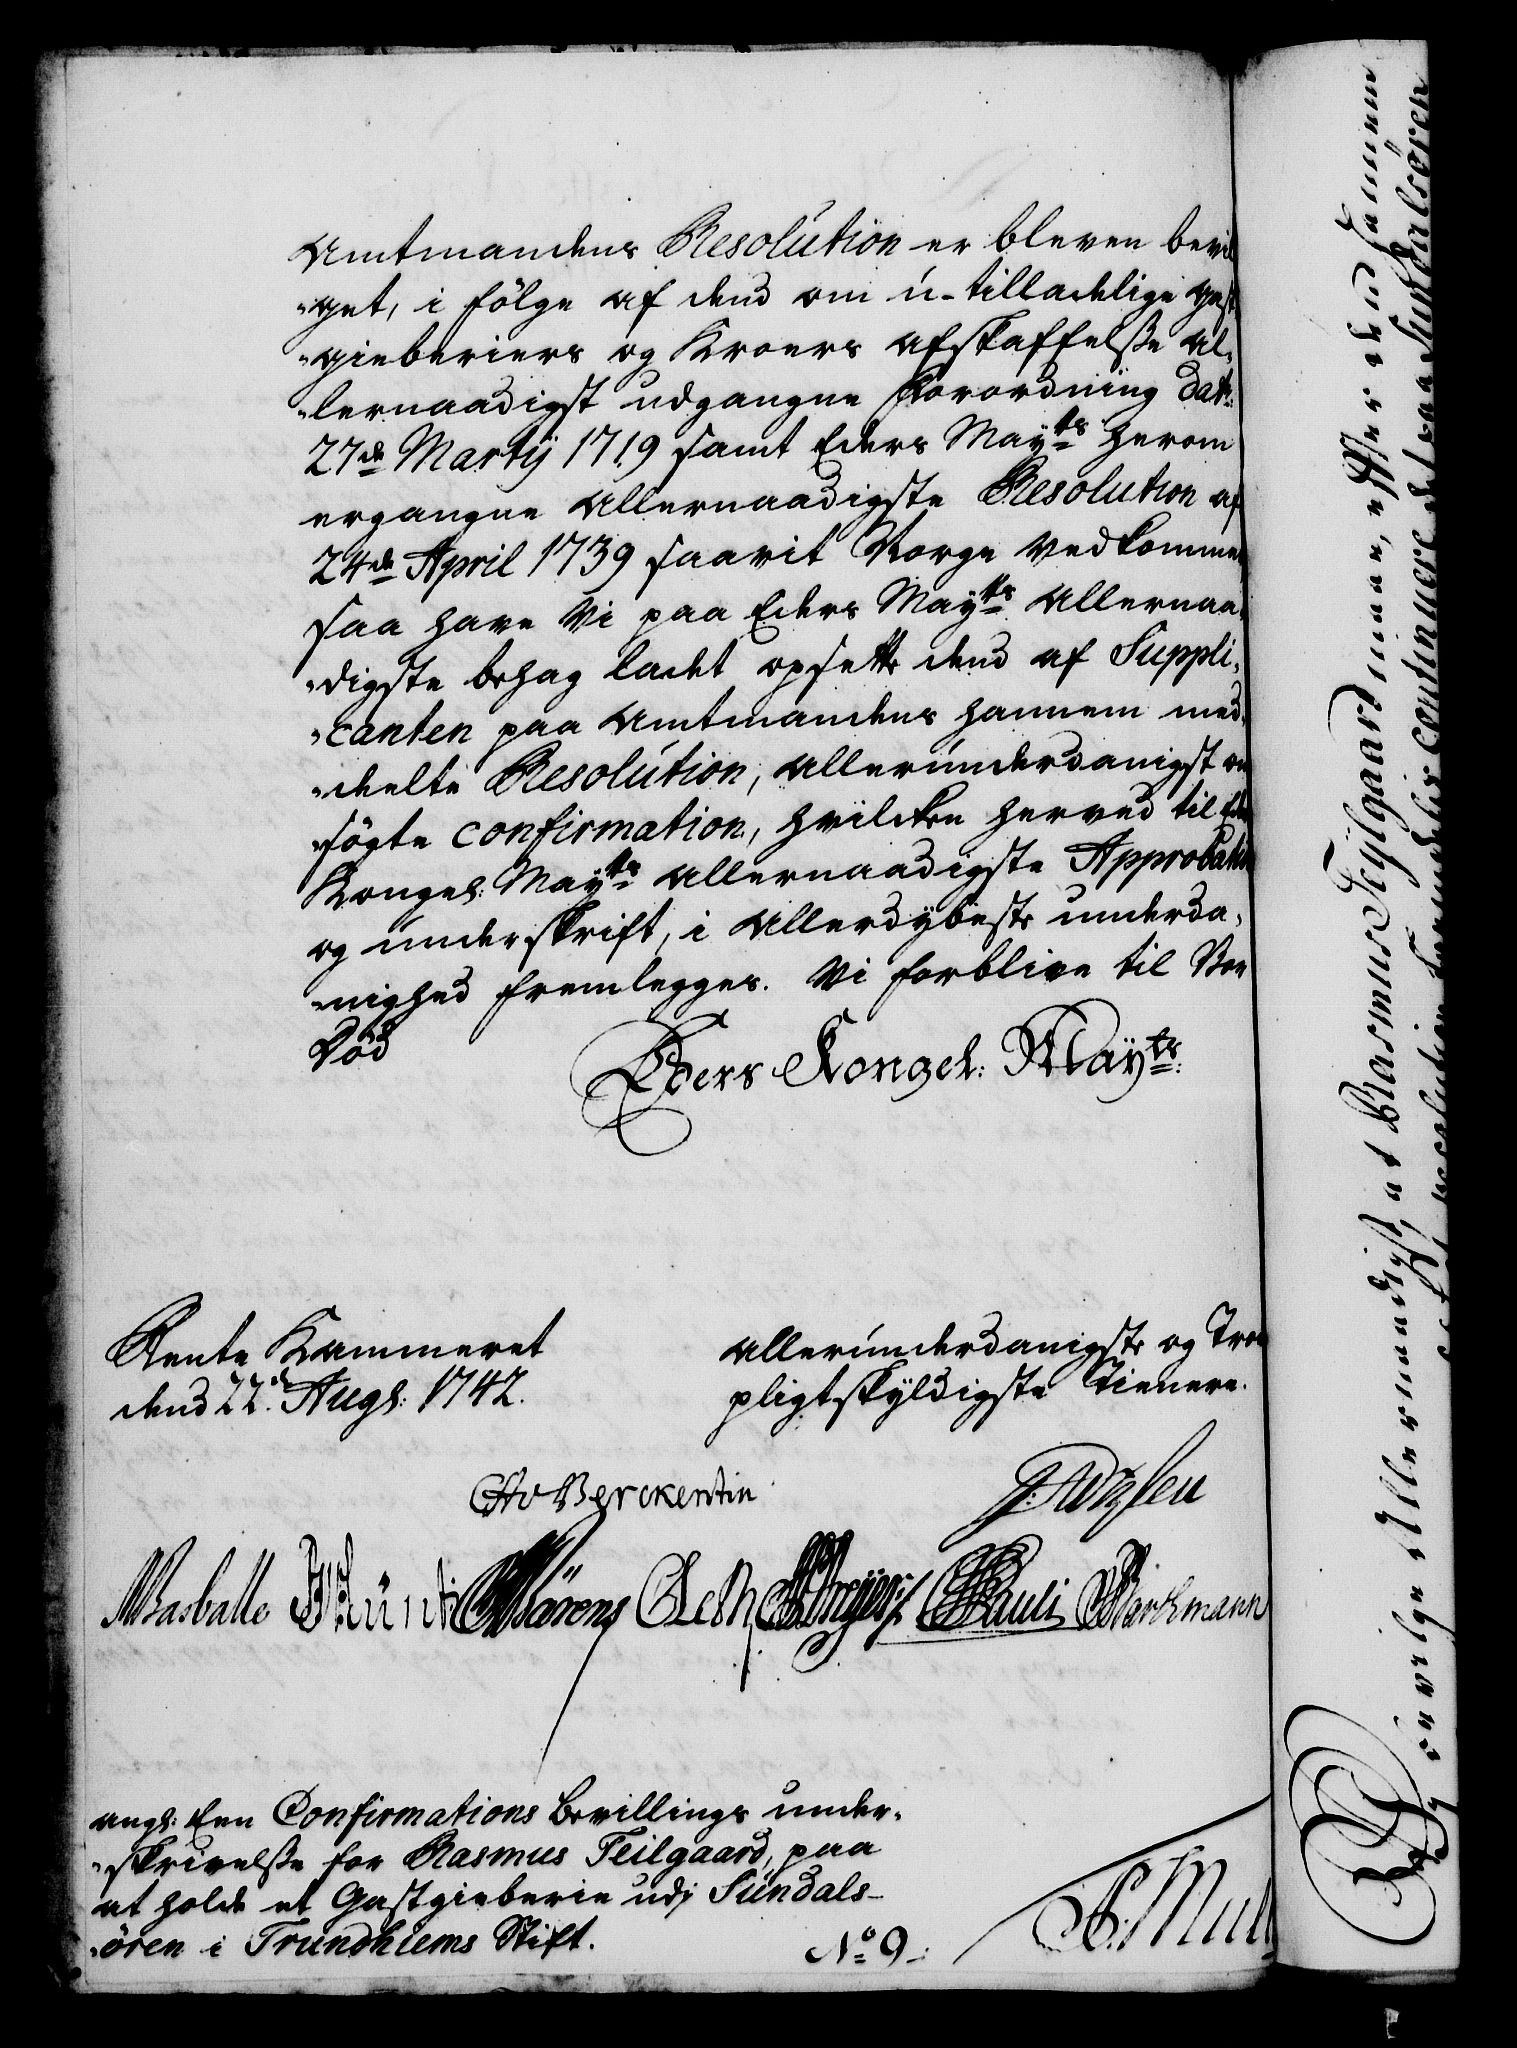 Amtmandens Resolution er bleven bevil
-get, i følge af dend om u-tilladelige gest
-gieberiers og Kroers afskaffelsse al-
-lernaadigst udgangne Forordning dat:
27de Martij 1719 samt Eders Mayts herom
ergangne allernaadigste Resolution af
24de April 1739 saavit Norge vedkommer
saa have Vi paa Eders Mayts allernaa-
-digste behag ladet opsette dend af Suppli-
-canten paa Amtmandens hannem med-
-deelte Resolution, allerunderdanigst an
-søgte confirmation, hvilcken herved til Eders
Kongel: Mayts allernaadigste Approbation
og underskrift, i allerdybeste underda-
-nighed fremlegges. Vi forblive til Vor
Død
Eders Kongel: Mayts:
Rente Kammeret
dend 22de Augs: 1742.
allerunderdanigste og Troe
pligtskyldigste Tienere.
CAv Berckentin
Wasballe Mörens Pauli Barchmann
angl: Een Confirmations bevillings under-
-skrivelsse for Rasmus Teilgaard, paa
at holde et Gastgieberie udj Sundals-
-øren i Trundhiems Stift.
No 9
Mull
Bevilge Allernaadigst, at Rasmus Teylgaard maae, efter dend hannem
resolution fremdeelis continuere det paa Sundalsøren